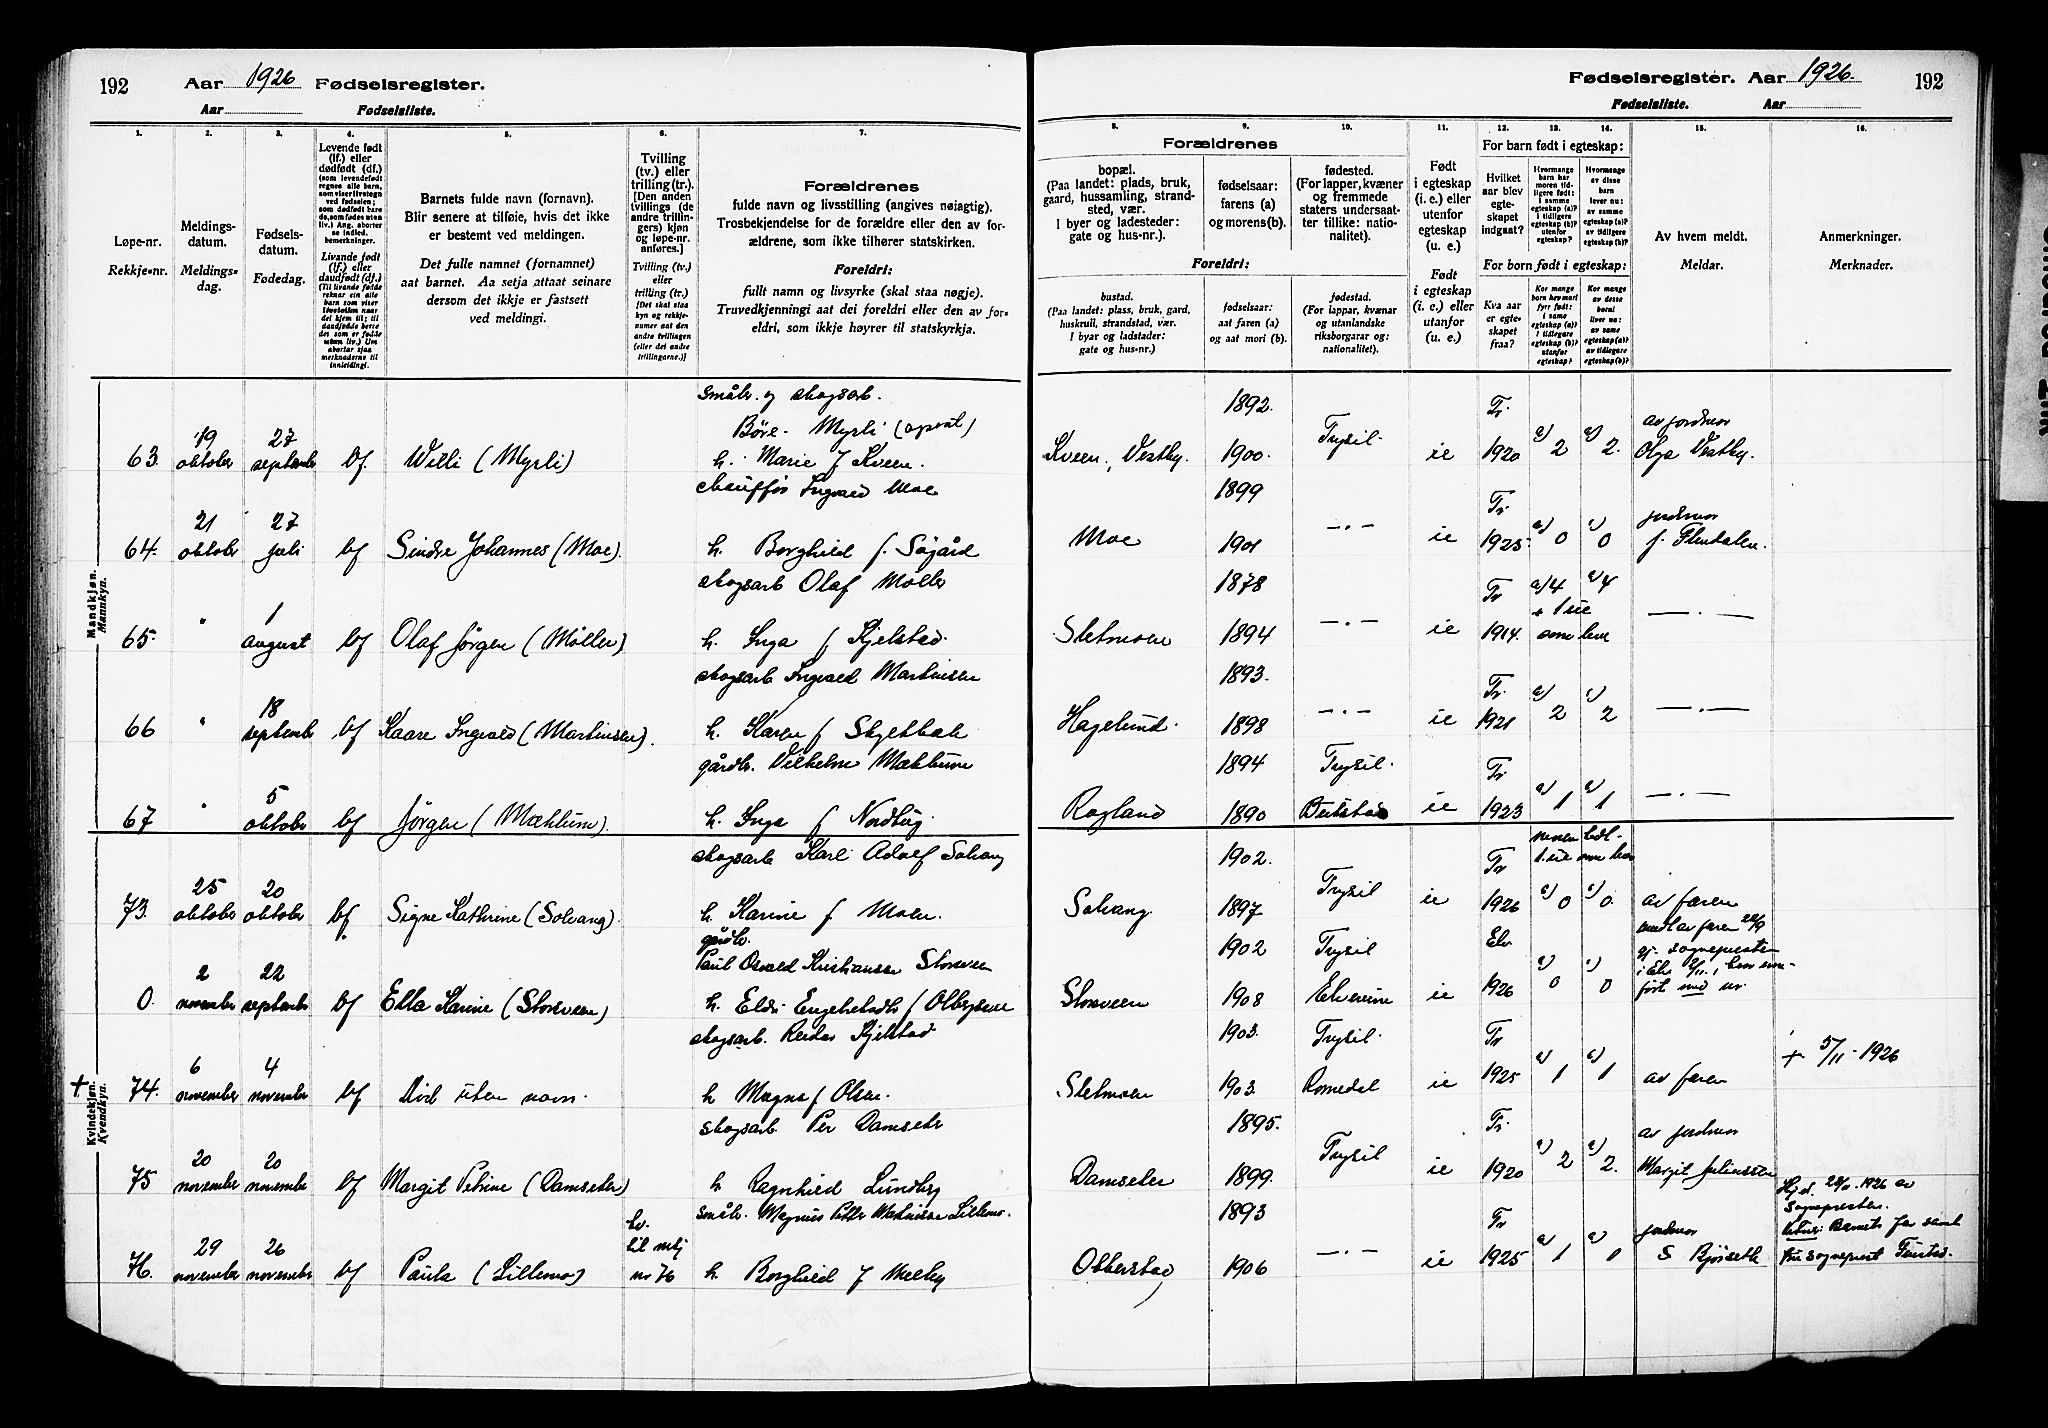 192 Aar 1926 Fødselsregister.
Aar Fødselsliste.
1. 2. 3. 4. 5. 6. 7.
Løpe-nr.
Rekkje-nr.
Meldings-
datum.
Meldings-
dag.
Fødsels-
datum.
Fødedag.
Levende født
(lf.) eller
dødfødt (df.)
Livande fødd
(lf.) eller
daudfødt (df.)
Barnets fulde navn (fornavn).
Blir senere at tilføie, hvis det ikke
er bestemt ved meldingen.
Det fulle namnet (fornamnet)
aat barnet. Aa setja attaat seinare
dersom det ikkje er fastsett
ved meldingi.
Tvilling
(tv.) eller
trilling (tr.).
[Den anden
tvillings (de
andre trillin-
gers) kjøn
og løpe-nr.
anføres.]
Tvilling (tv.)
eller
trilling (tr.)
Forældrenes
fulde navn og livsstilling (angives nøiagtig).
Trosbekjendelse for de forældre eller den av for-
ældrene, som ikke tilhører statskirken.
Foreldri:
fullt namn og livsyrke (skal staa nøgje).
Truvedkjenningi aat dei foreldri eller den av for-
eldri, som ikkje høyrer til statskyrkja.
Mandkjøn.
Mannkyn.
63. 19 oktober 27 september lf. Willi (Myrli)
Småbr. og skogsarb.
Børe Myrli
h. Marie f Kveen.
64. 21 oktober 27 juli lf Sindre Johannes (Moe).
chauffør Ingvald Moe
h. Borghild f. Søgård
65. " 1 august lf Olaf Jørgen (Møller)
skogsarb Olaf Møller
h. Inga f Kjelstad.
66 " 18 september lf Kaare Ingvald (Martinsen).
skogsarb Ingvald Martinsen
h. Karen f Skjetbak
67 " 5 oktober lf Jørgen (Mæhlum).
gårdbr. Vilhelm Mæhlum
h. Inga f Nordbug.
Kvindekjøn.
Kvendkyn.
73. 25 oktober 20 oktober lf. Signe Kathrine (Solvang).
skogsarb Karl Adolf Solvang
h. Karine f Moen.
0. 2 november 22 september lf Ella Karine (Storsveen)
gårdbr.
Paul Osvald Kristiansen Storsveen
h. Eldri Engebretsdtr f Olbergsen
+ 74. 6 november 4 november lf Død uten navn.
skogsarb. Reidar Kjelstad
h Magna f Olsen.
75 20 november 20 november lf Margit Petrine (Damseter)
skogsarb. Per Damseter
h Ragnhild Lundby
76. 29 november 26 november lf Paula (Lillemo) tv. til nr 76
småbr. Magnus Petter Martinsen Lillemo.
h. Borghild f Melby
Fødselsregister. Aar 1926. 192
Fødselsliste. Aar
8. 9. 10. 11. 12. 13. 14. 15. 16.
Forældrenes
bopæl.
(Paa landet: plads, bruk,
gaard, hussamling, strand-
sted, vær.
I byer og ladesteder:
gate og hus-nr.).
fødselsaar:
farens (a)
og morens(b).
fødested.
(For lapper, kvæner
og fremmede
staters undersaat-
ter tillike: natio-
nalitet).
Foreldri:
bustad.
(Paa landet: plass, bruk, gard,
huskrull, strandstad, vær.
I byar og ladstader:
gate og hus-nr.)
fødselsaar:
aat faren (a)
og aat mori (b).
fødestad.
(For lappar, kvænar
og utanlandske
riksborgarar og:
nationalitet).
Født
i egteskap
(i. e.) eller
utenfor
egteskap
(u. e.)
Født
i egteskap
(i. e.) eller
utanfor
(u. e.)
For barn født i egteskap:
Hvilket
aar blev
egte-
skapet
indgaat?
For born født i egteskap:
Kva aar
er egte-
skapet
fraa?
Av hvem meldt.
Meldar.
Anmerkninger.
Merknader.
Kveen, Vestby. 1892. 1900. Trysil. ie Tr. 1920 a) 2 a) 2. av jordmor Olga Vestby.
Moe 1899 1901 —"— ie Tr. 1925. a) 0 a) 0 jordmor f. Flendalen.
Sletmoen 1878 1894 —"— ie Tr 1914. a) 4 + 1 ue som lever a) 4 —"—
Hagelund. 1893. 1898 —"— ie Tr. 1921 a) 2 a) 2 —"—
Rogland 1894 1890 Trysil. Beitstad ie Tr 1923 a) 1 a) 1 —"—
Solvang 1902. 1897. Trysil ie Tr 1926 a) 0 a) 0. av faren
Storsveen 1902 1908 Trysil Elverum ie Elv 1926 a) 0 a) 0 meldt av faren 22/9 gj. sognepresten i Elv. 2/11,
Sletmoen 1903. 1903. Trysil. Romedal ie Tr 1925 a) 1 a) 1 av faren + 5/11-1926
Damseter 1895. 1899. Trysil ie Tr. 1920 a) 2 a) 2. av jordmor Margit Juliussen
Olderstad 1893 1906 —"— ie Tr 1925 a) 1 a) 1 jordmor S Bjørseth
Hjd. 28/11.1926 av
Sognepresten.
Barnets far samt
fru sogneprest